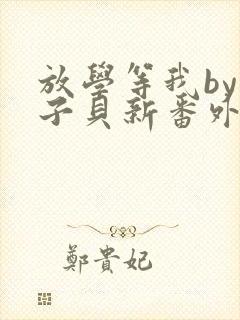 放學等我by
子貝新番外
鄭貴妃